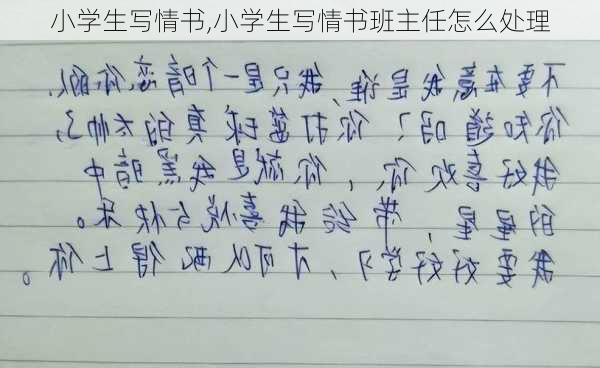 小学生写情书,小学生写情书班主任怎么处理
不要在意我是谁,我只是一个暗恋你的人,
你知道吗?你打蓝球真的太帅了,
我好喜欢你,你就是我黑暗中
的星星,带给我喜悦与快乐。
我要好好学习,才可以配得上你。